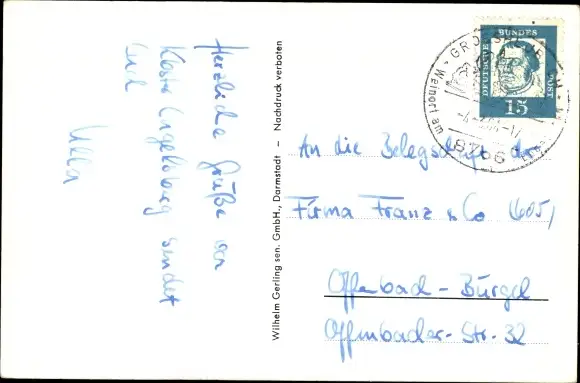 Herzliche Grüße von
Kloster Engelsberg sendet
Euch
Ulla
Wilhelm Gerling sen. GmbH., Darmstadt — Nachdruck verboten
DEUTSCHE BUNDES POST
15
GROSSHEUBACH
Weinort
8766
An die Belegschaft der
Firma Franz & Co (605)
Offenbach - Bürgel
Offenbacher-Str. 32